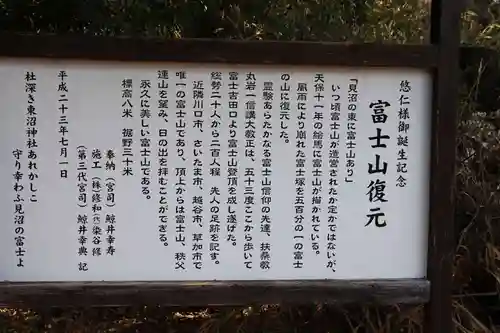 悠仁様御誕生記念
富士山復元
「見沼の東に富士山あり」
いつ頃富士山が造営されたか定かではないが、
天保十一年の絵馬に富士山が描かれている。
風雨により崩れた富士塚を五百分の一の富士
の山に復元した。
霊験あらたかなる富士山信仰の先達、扶桑教
丸岩一信講大教正は、五十三度ここから歩いて
富士吉田口より富士山登頂を成し遂げた。
総勢二十人から二百人程 先人の足跡を記す。
近隣川口市、さいたま市、越谷市、草加市で
唯一の富士山であり、頂上からは富士山、秩父
連山を望み、日の出を拝むことができる。
永久に美しい富士山である。
標高八米 裾野三十米
奉納(宮司)鯨井幸寿
施工(株)修和(代)染谷修
(第三代宮司)鯨井幸典 記
平成二十三年七月一日
社深き東沼神社あれかしこ
守り幸わふ見沼の富士よ